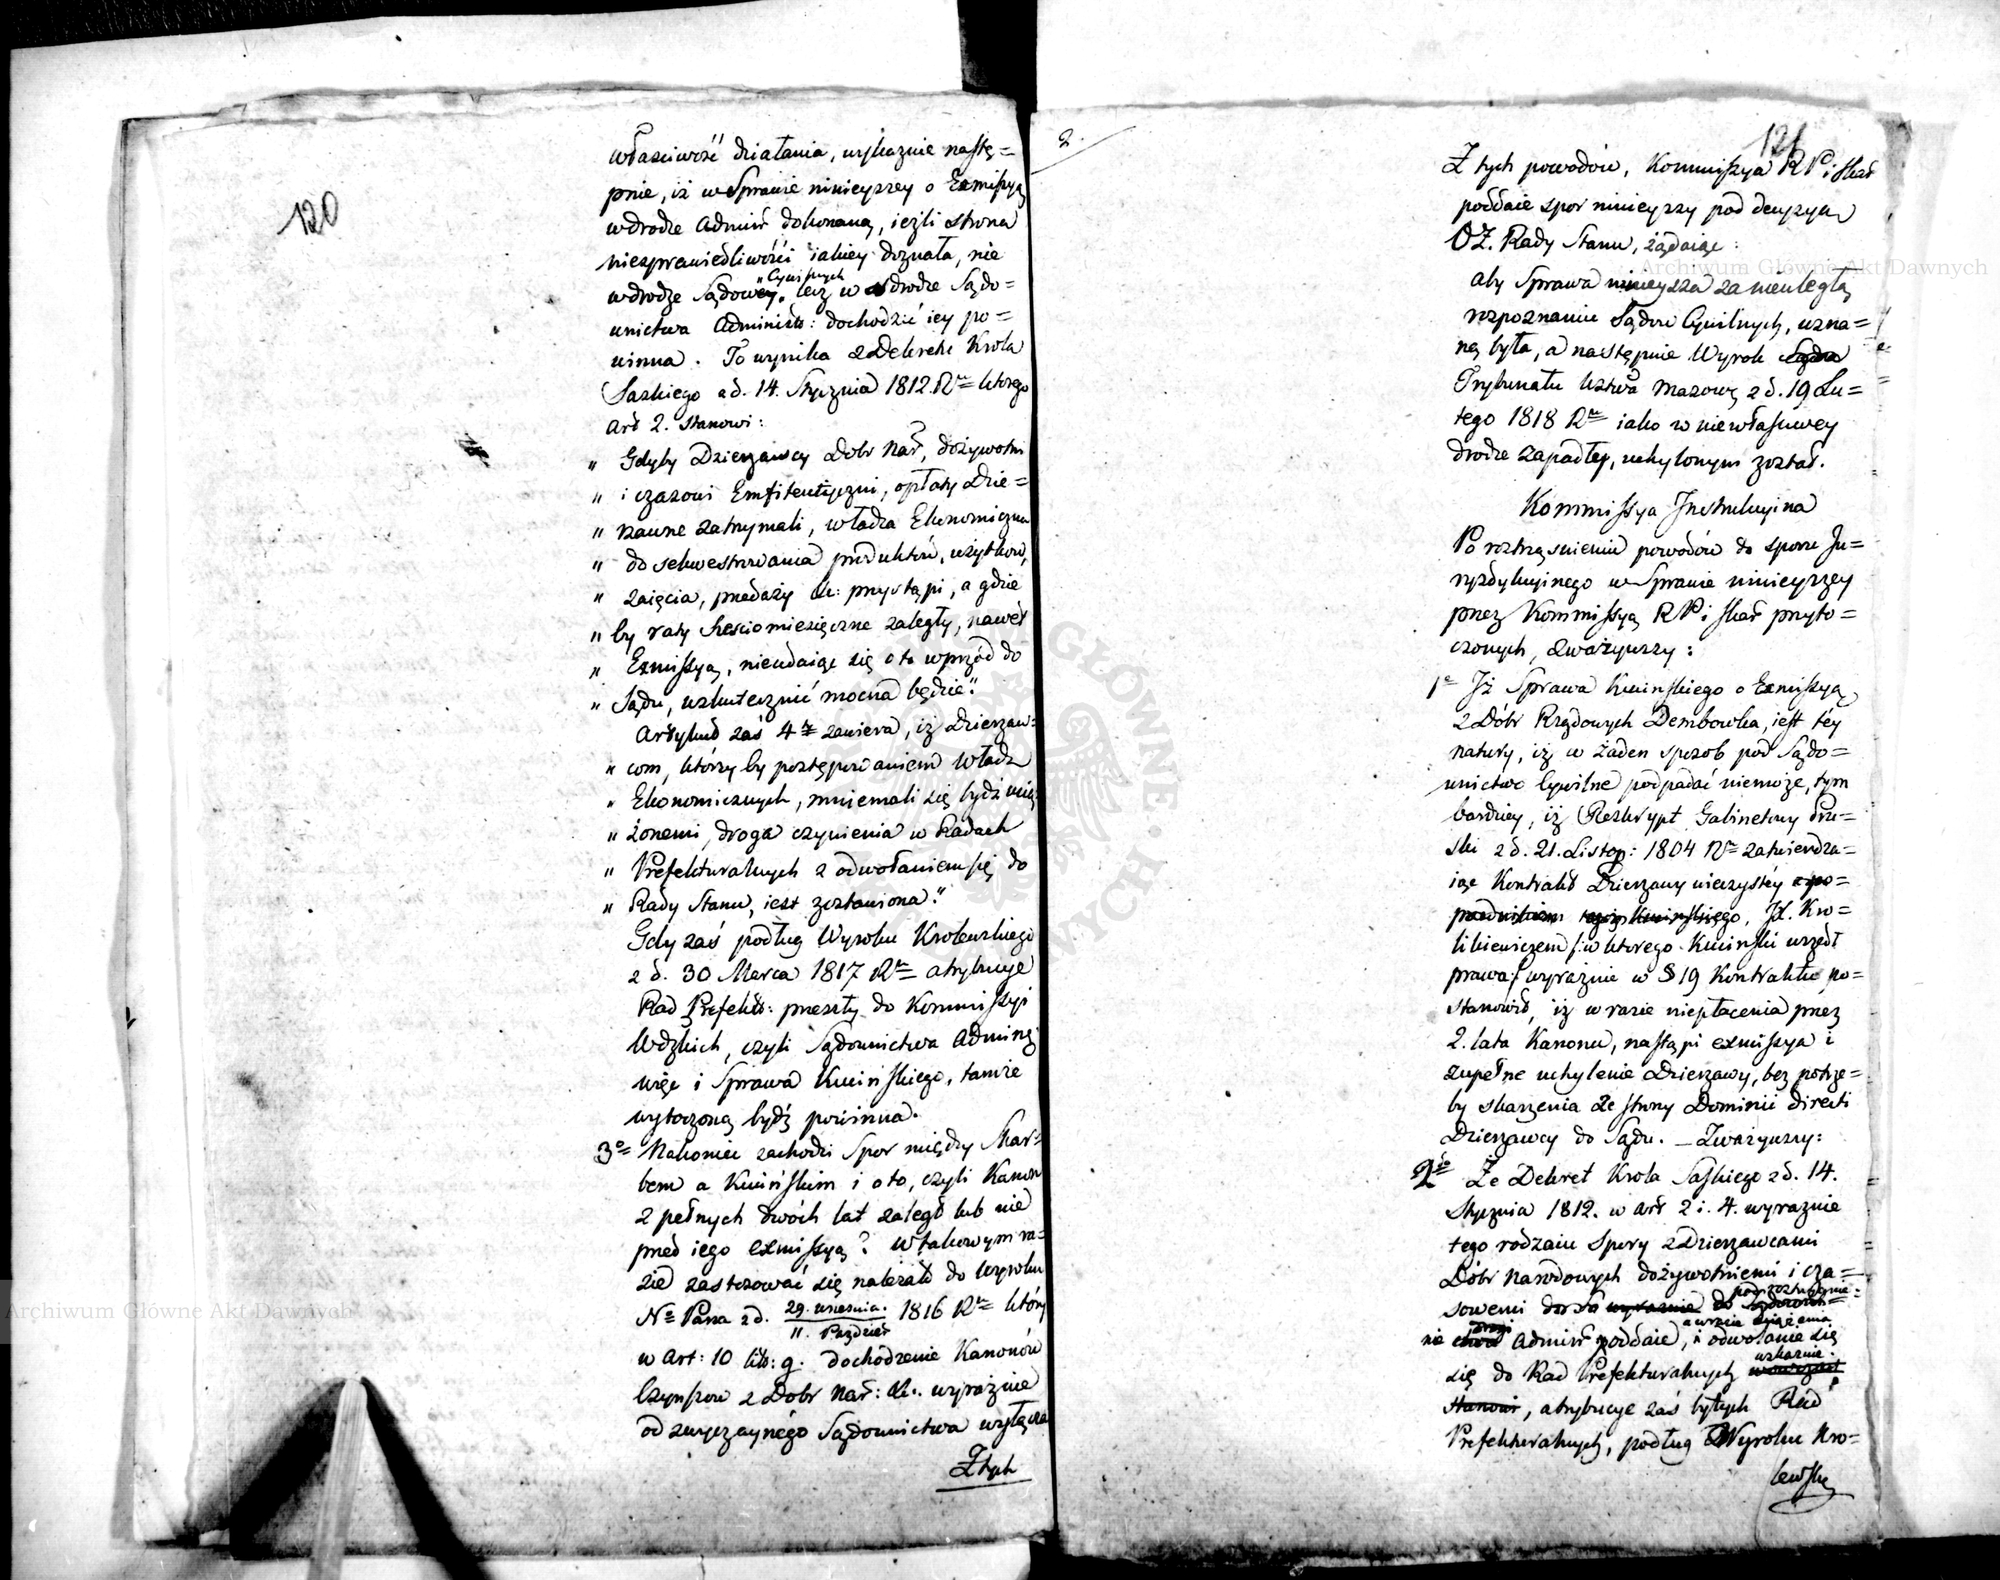 120
właściwość działania, wykaznie nastę=
pnie, iż w Sprawie ninieyszey o Exmissyą
w drodze Admin̄ dokonaną, ieżli strona
niesprawiedliwości iakiey doznała, nie
w drodze Sądowey „Cywilnych lecz w drodze Sądo=
wnictwa Administr: dochodzić iey po=
winna. To wynika z Dekretu Krola
Saskiego z d. 14. Stycznia 1812. R. ktorego
Art 2. Stanowi:
„ Gdyby Dzierżawcy Dobr Nar, dożywotni
„ i czasowi Emfiteutyczni, opłaty Dzie=
„ rzawne zatrzymali, władza Ekonomiczna
„ do sekwestrowania produktów, użytków,
„ zaięcia, przedaży etc: przystąpi, a gdzie
„ by raty sześciomiesięczne zaległy, nawet
„ Exmissyą, nieudaiąc się o to wprzód do
„ Sądu, uskutecznić mocna będzie."
Artykuł zaś 4ty zawiera, iż Dzierzaw=
„ com, którzy by postępowaniem władz
„ Ekonomicznych, mniemali się bydź uciąg=
„ żonemi, droga czynienia w Radach
„ Prefekturalnych z odwołaniem się do
„ Rady Stanu, iest zostawiona."
Gdy zaś podług Wyroku Krolewskiego
z d. 30 Marca 1817 R. atrybucye
Rad Prefekt: przeszły do Kommissyi
Wdzkich, czyli Sądownictwa Adminį
więc i Sprawa Kucińskiego, tamże
wytoczoną bydź powinna.
3o Nakoniec zachodzi Spor między Skar=
bem a Kucińskim i o to, czyli Kanon
z pełnych dwóch lat zaległ lub nie
przed iego exmissyą? w takowym ra=
zie zastosować się należało do Wyroku
No Pana z d. 29. wrzesnia. / 11. Paździer 1816 R. który
w Art: 10 lit: g. dochodzenie Kanonów
Czynszow z Dobr Nar: etc. wyraźnie
od zwyczaynego Sądownictwa wyłącza
Z tych
2.
121
Z tych powodów, Kommissya R P i Skar
poddaie spor ninieyszy pod decyzyą
OZ. Rady Stanu, żądaiąc:
aby Sprawa ninieysza za nieuległą
rozpoznaniu Sądow Cywilnych, uzna=
ną była, a następnie Wyrok Sądu
Trybunału Wztwa Mazow z d. 19 Lu=
tego 1818 R. iako w niewłaściwey
drodze zapadłey, uchylonym został.
Kommissya Instrukcyina
Po roztrząśnieniu powodów do sporu Ju=
ryzdykcyinego w Sprawie ninieyszey
przez Kommissyą R P i Skar przyto=
czonych, zważywszy:
1o Iż Sprawa Kucinskiego o Exmissyą
z Dóbr Rządowych Dembowka, iest tey
natury, iż w żaden sposob pod Sądo=
wnictwo Cywilne podpadać niemoże, tym
bardziey, iż Reskrypt Gabinetowy Pru=
ski z d. 21. Listop: 1804 R. zatwierdza=
iąc Kontrakt Dzierzawy wieczystéy z po=
przednikiem tegoż Kucińskiego, JX. Kro=
likiewiczem /: w ktorego Kuciński wszedł
prawa:/ wyraźnie w § 19 Kontraktu po=
stanowił, iż w razie niepłacenia przez
2. lata Kanonu, nastąpi exmissya i
zupełne uchylenie Dzierżawy, bez potrze=
by skarżenia ze strony Dominii directi
Dzierżawcy do Sądu. — Zważywszy:
2do Że Dekret Krola Saskiego z d. 14.
Stycznia 1812. w Art 2 i. 4. wyraźnie
tego rodzaiu Spory z Dzierzawcami
Dóbr Narodowych dożywotniemi i cza=
sowemi wyraźnie do
Admin poddaie, i odwołanie się
się do Rad Prefekturalnych wskazuie.
Stanowi, atrybucye zaś byłych Rad
Prefekturalnych, podług Wyroku Kro=
lewskg
Archiwum Główne Akt Dawnych
Archiwum Główne Akt Dawnych